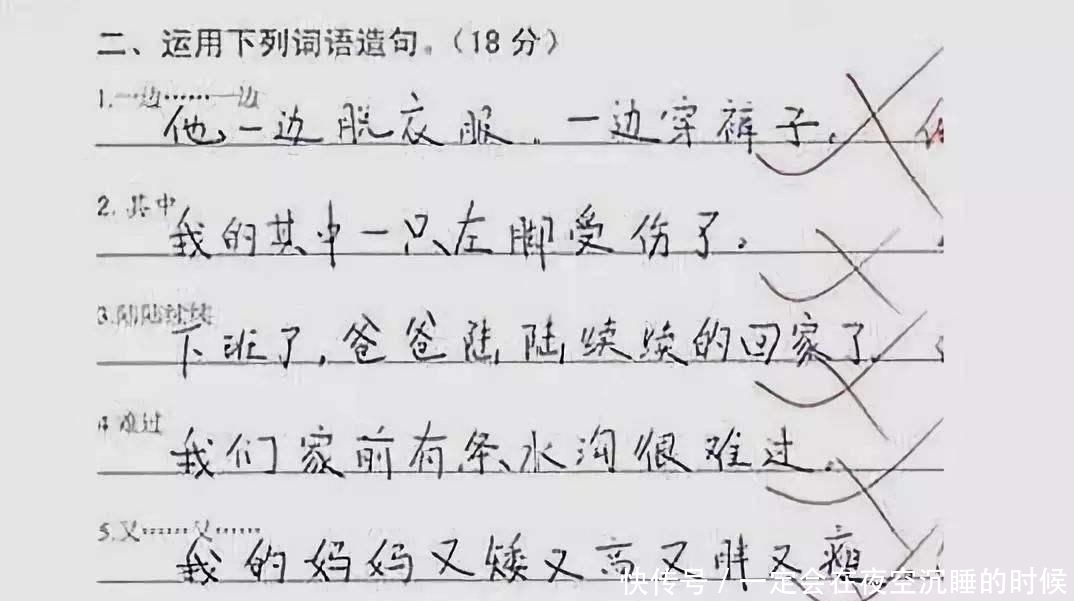 二、运用下列词语造句。(18分)
1.一边……一边
他一边脱衣服,一边穿裤子。
2.其中
我的其中一只左脚受伤了。
3.陆陆续续
下班了,爸爸陆陆续续的回家了。
4.难过
我们家前有条水沟很难过。
5.又……又……
我的妈妈又矮又高又胖又瘦
快传号/一定会在夜空沉睡的时候